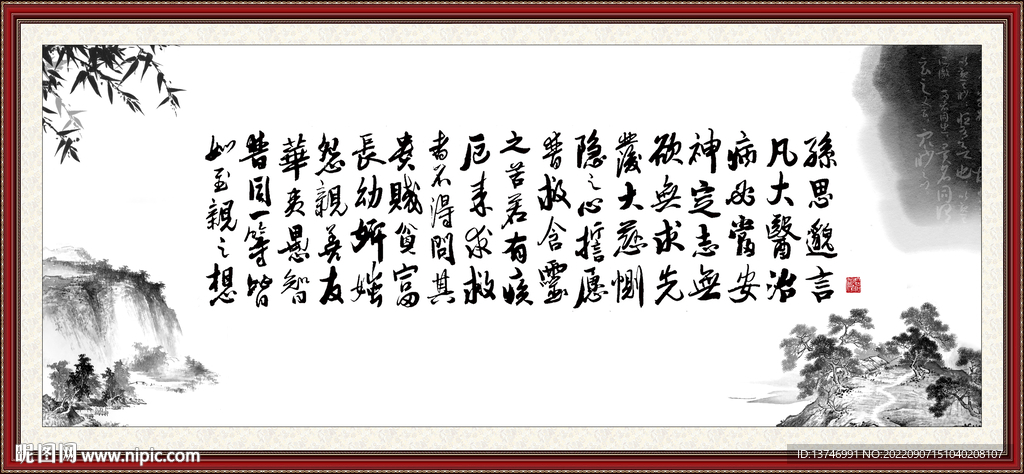 孫思邈言
凡大醫治
病必當安
神定志無
欲無求先
發大慈惻
隐之心誓愿
普救含靈
之苦若有疾
厄来求救
者不得問其
貴賤貧富
長幼妍媸
怨親善友
華夷愚智
普同一等皆
如至親之想
昵图网 www.nipic.com
ID:13746991 NO:20220907151040208107